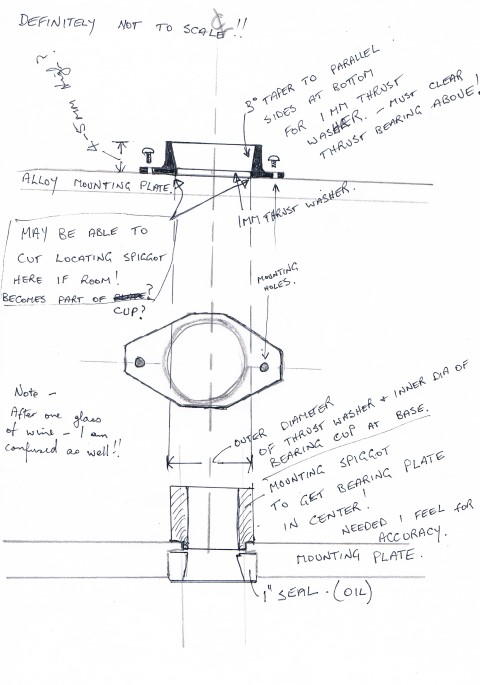 DEFINITELY NOT TO SCALE!!
4-5 MM high ?
3° TAPER TO PARALLEL
SIDES AT BOTTOM
FOR 1 MM THRUST
WASHER. - MUST CLEAR
THRUST BEARING ABOVE!
ALLOY MOUNTING PLATE.
1MM THRUST WASHER.
MAY BE ABLE TO
CUT LOCATING SPIGGOT
HERE IF ROOM!
BECOMES PART OF PLATE?
CUP?
MOUNTING
HOLES.
Note -
After one glass
of wine - I am
confused as well!!
OUTER DIAMETER
OF THRUST WASHER & INNER DIA OF
BEARING CUP AT BASE.
MOUNTING SPIGGOT
TO GET BEARING PLATE
IN CENTER!
NEEDED I FEEL FOR
ACCURACY.
MOUNTING PLATE.
1" SEAL. (OIL)